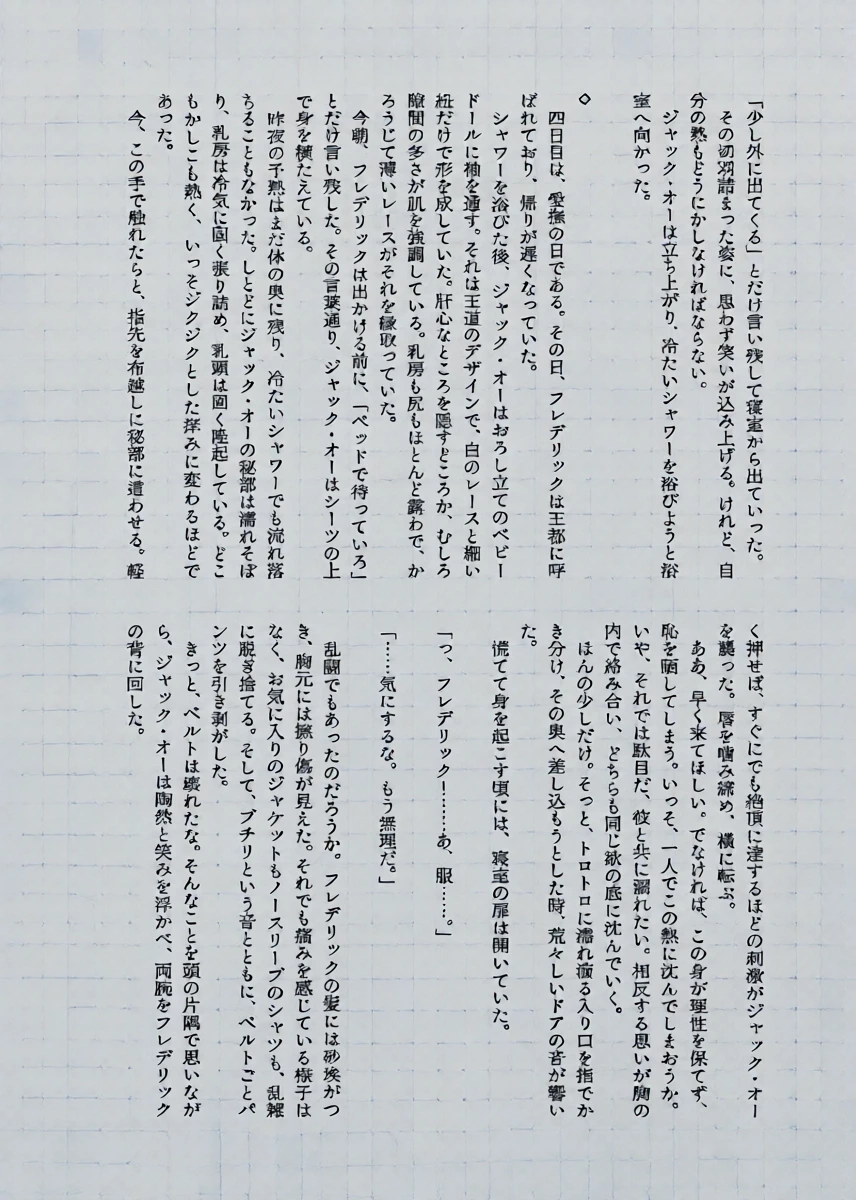 「少し外に出てくる」とだけ言い残して寝室から出ていった。
その切羽詰まった姿に、思わず笑いが込み上げる。けれど、自
分の熱もどうにかしなければならない。
ジャック・オーは立ち上がり、冷たいシャワーを浴びようと浴
室へ向かった。
◇
四日目は、愛撫の日である。その日、フレデリックは王都に呼
ばれており、帰りが遅くなっていた。
シャワーを浴びた後、ジャック・オーはおろし立てのベビー
ドールに袖を通す。それは王道のデザインで、白のレースと細い
紐だけで形を成していた。肝心なところを隠すどころか、むしろ
隙間の多さが肌を強調している。乳房も尻もほとんど露わで、か
ろうじて薄いレースがそれを縁取っていた。
今朝、フレデリックは出かける前に、「ベッドで待っていろ」
とだけ言い残した。その言葉通り、ジャック・オーはシーツの上
で身を横たえている。
昨夜の予熱はまだ体の奥に残り、冷たいシャワーでも流れ落
ちることもなかった。しとどにジャック・オーの秘部は濡れそぼ
り、乳房は冷気に固く張り詰め、乳頭は固く隆起している。どこ
もかしこも熱く、いっそジクジクとした痒みに変わるほどで
あった。
今、この手で触れたらと、指先を布越しに秘部に這わせる。軽
く押せば、すぐにでも絶頂に達するほどの刺激がジャック・オー
を襲った。唇を噛み締め、横に転ぶ。
ああ、早く来てほしい。でなければ、この身が理性を保てず、
恥を晒してしまう。いっそ、一人でこの熱に沈んでしまおうか。
いや、それでは駄目だ、彼と共に溺れたい。相反する思いが胸の
内で絡み合い、どちらも同じ欲の底に沈んでいく。
ほんの少しだけ。そっと、トロトロに濡れ滴る入り口を指でか
き分け、その奥へ差し込もうとした時、荒々しいドアの音が響い
た。
慌てて身を起こす頃には、寝室の扉は開いていた。
「っ、フレデリック!……あ、服……。」
「……気にするな。もう無理だ。」
乱闘でもあったのだろうか。フレデリックの髪には砂埃がつ
き、胸元には擦り傷が見えた。それでも痛みを感じている様子は
なく、お気に入りのジャケットもノースリーブのシャツも、乱雑
に脱ぎ捨てる。そして、ブチリという音とともに、ベルトごとパ
ンツを引き剥がした。
きっと、ベルトは壊れたな。そんなことを頭の片隅で思いなが
ら、ジャック・オーは陶然と笑みを浮かべ、両腕をフレデリック
の背に回した。